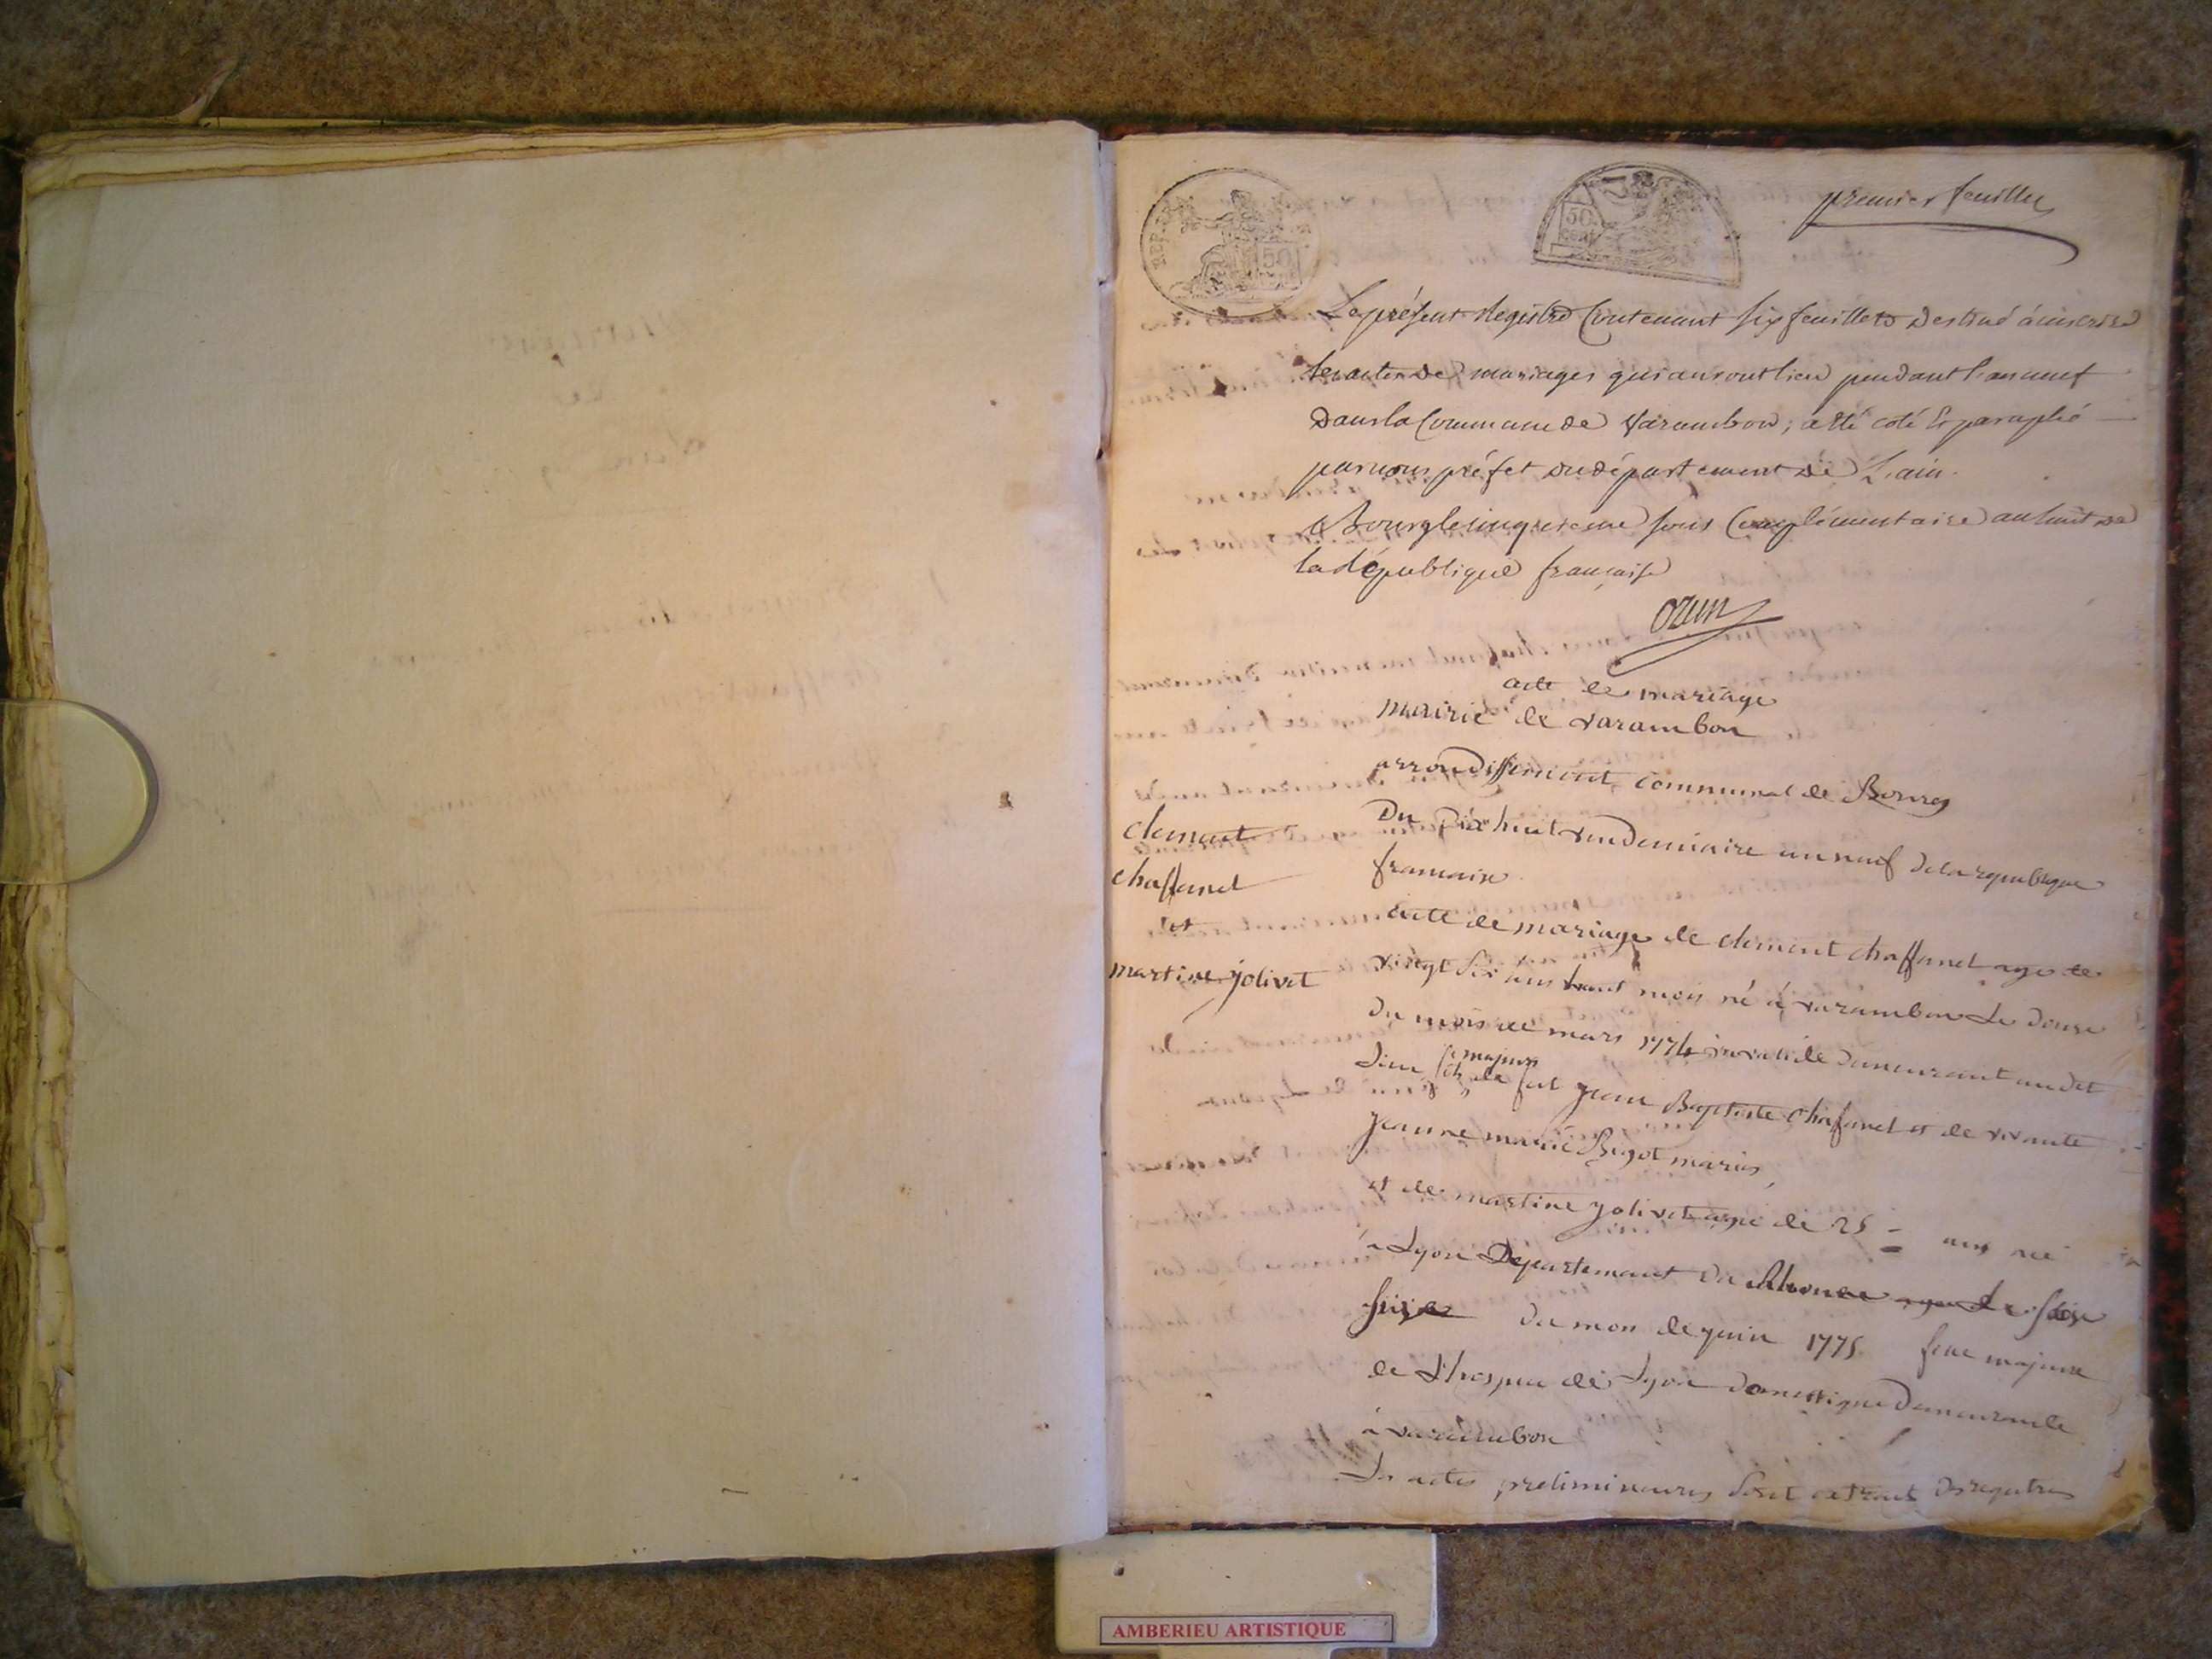 premier feuillet
REP. FRA.
50
50
CENT
Le présent Registre Contenant six feuillets destiné à inscrire
les actes de mariages qui auront lieu pendant l'an neuf
dans la Commune de Varambon; a été coté & paraphé
par nous préfet du département de L'ain.
a Bourg le cinquieme jour Complémentaire an huit de
la République française
Ozun
acte de mariage
mairie de varambon
arrondissement communal de Bourg
Du Dix huit vendemiaire an neuf de la republique
francaise
clement
chaffanel
et
martine jolivet
acte de mariage de clement chaffanel age de
vingt six ans mois né à varambon le douze
du mois de mars 1774 demeurant au dit
lieu fils majeur de fut jean Baptiste chafanel et de vivante
jeanne marie Bigot mariés,
et de martine jolivet agé de 25 = ans née
à Lyon Departemant du Rhone le seize
du mois de juin 1775 majeure
de L'hospice de Lyon domestique demeurante
à varambon
Les actes preliminaires sont extrait des registres
AMBERIEU ARTISTIQUE